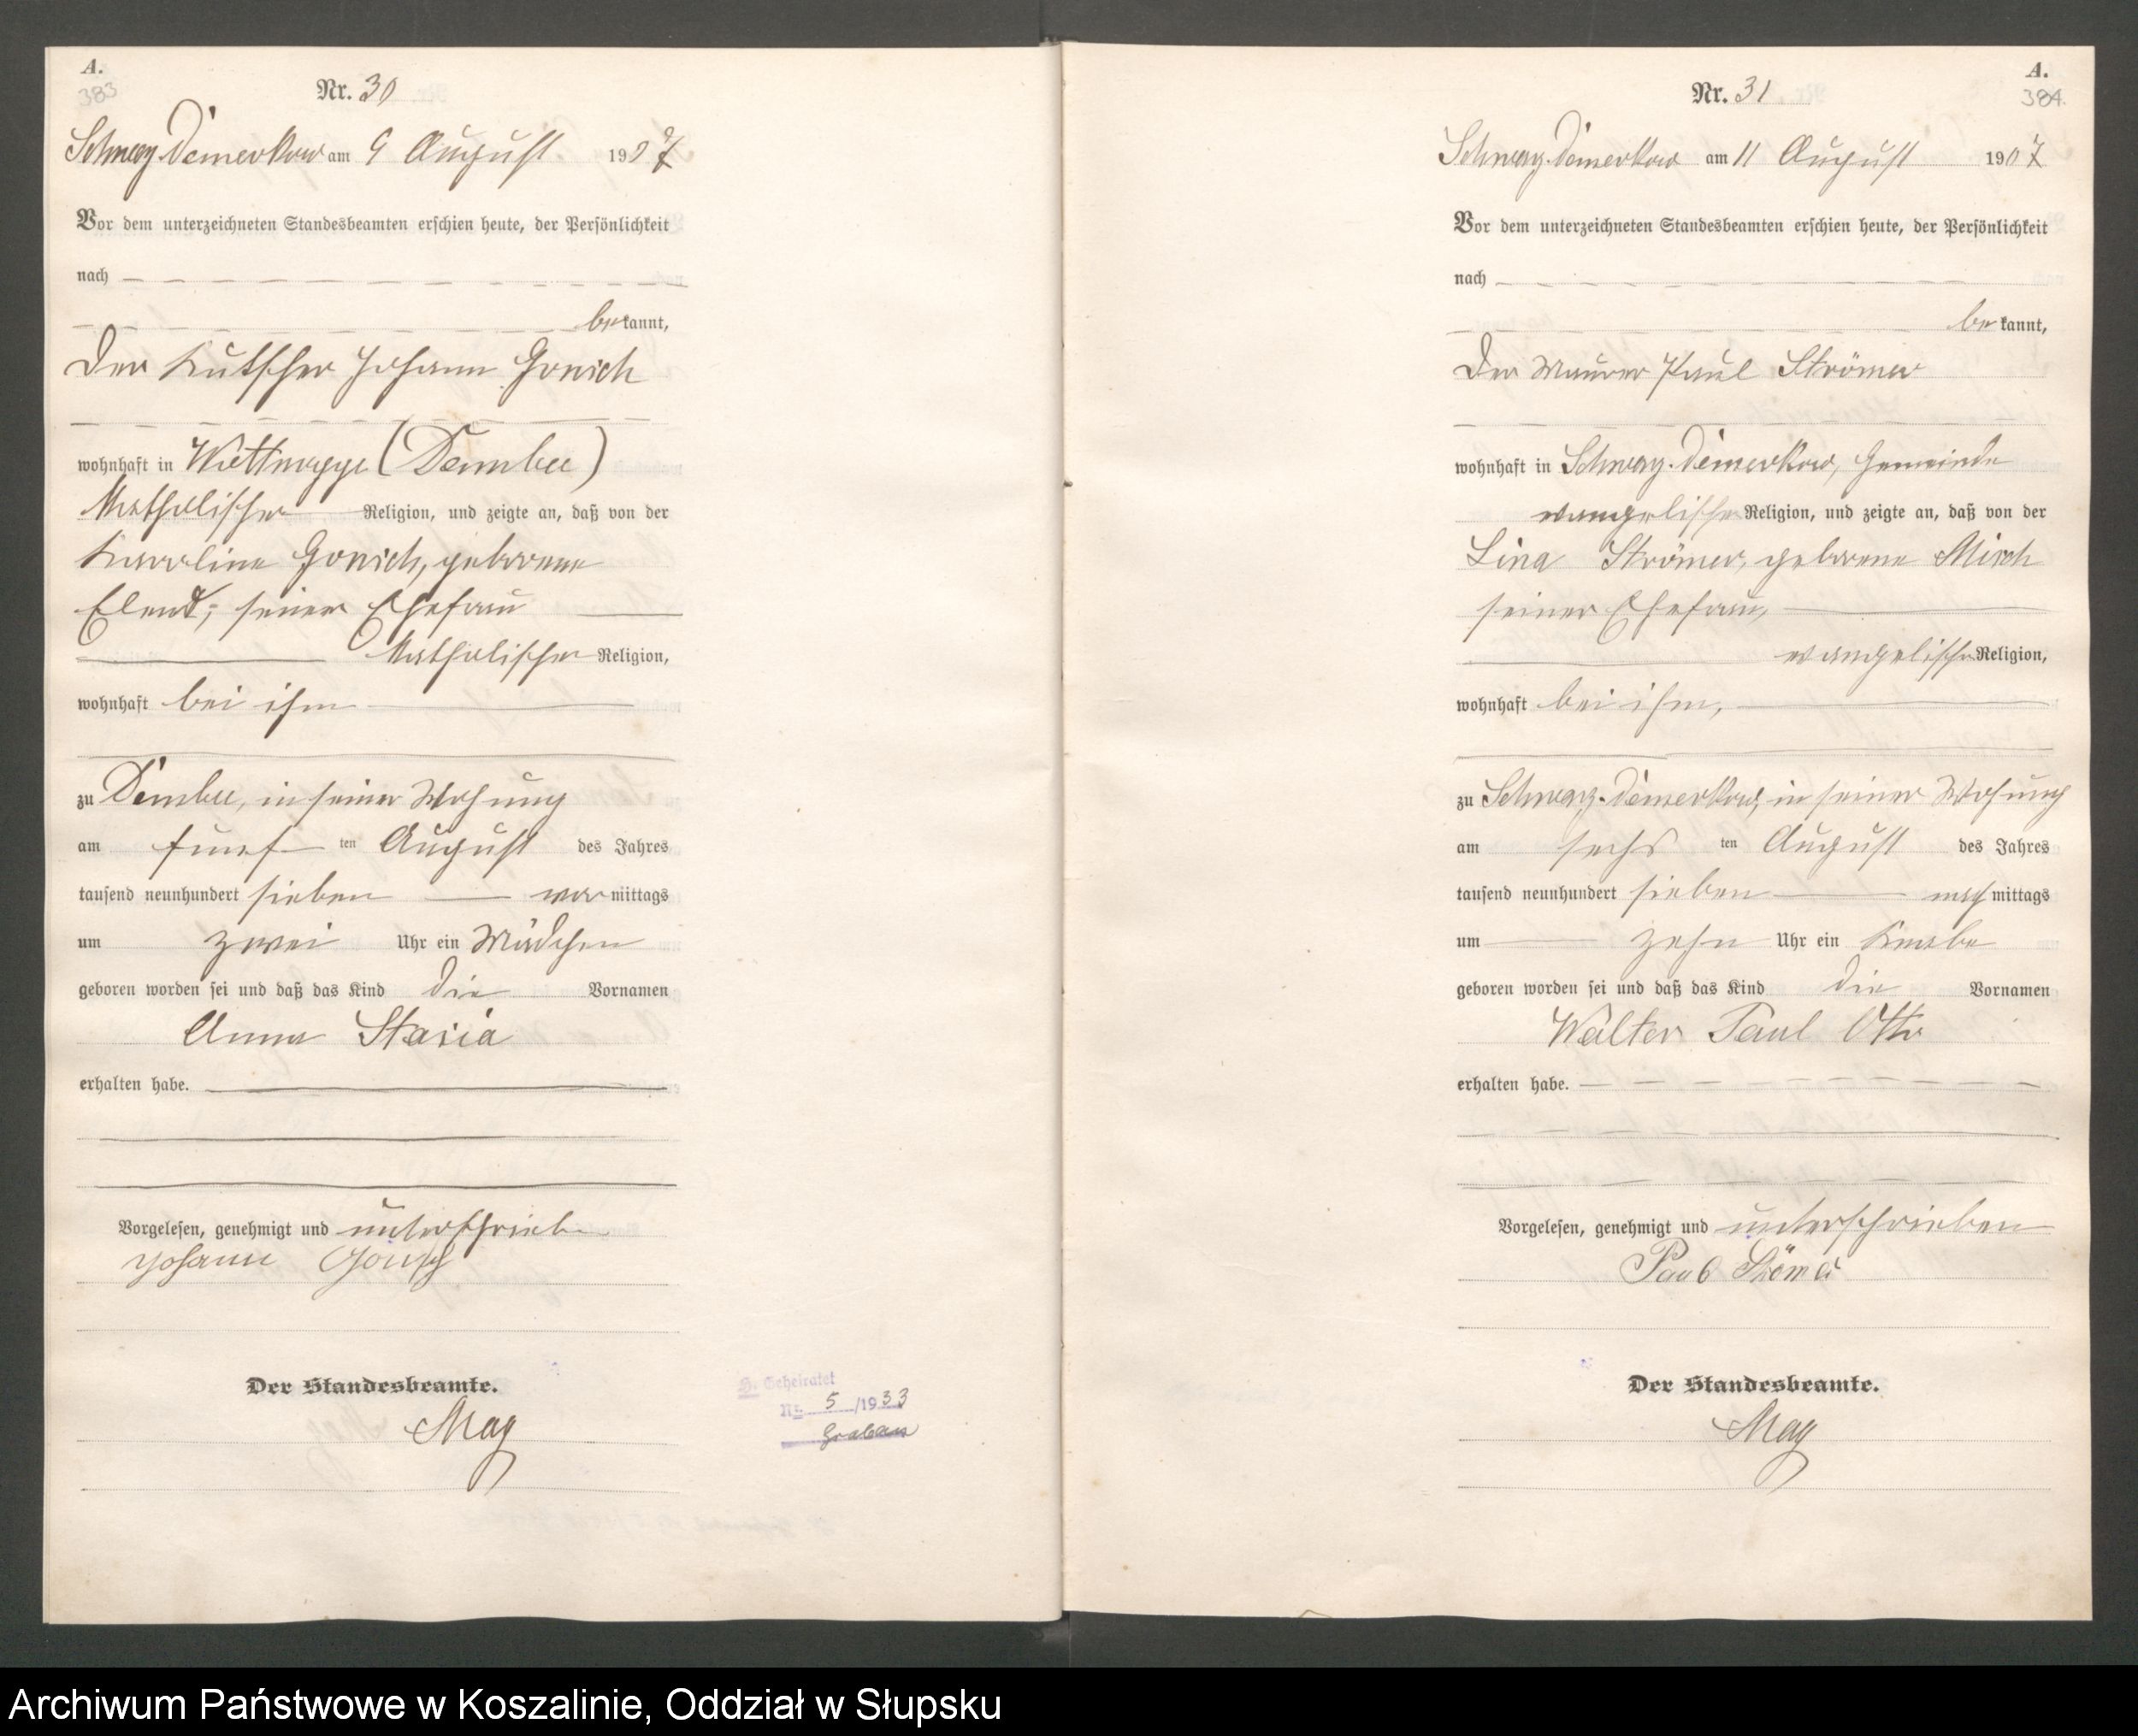 A.
383
Nr. 30
Schwarz Damerkow am 9 August 1907
Vor dem unterzeichneten Standesbeamten erschien heute, der Persönlichkeit
nach
bekannt,
Der Kutscher Johann Gonsch
wohnhaft in
Katholischer Religion, und zeigte an, daß von der
Karoline Gonsch, geborene
Elend, seiner Ehefrau
Katholischer Religion,
wohnhaft bei ihm
zu in seiner Wohnung
am fünf ten August des Jahres
tausend neunhundert sieben vor mittags
um zwei Uhr ein Mädchen
geboren worden sei und daß das Kind die Vornamen
Anna Stasia
erhalten habe.
Vorgelesen, genehmigt und unterschrieben
Johann Gonsch
Der Standesbeamte.
May
H. Geheiratet
Nr. 5/1933
A.
384.
Nr. 31
Schwarz-Damerkow am 11 August 1907
Vor dem unterzeichneten Standesbeamten erschien heute, der Persönlichkeit
nach
bekannt,
Der Maurer Paul Strömer
wohnhaft in Schwarz-Damerkow, Gemeinde
evangelischer Religion, und zeigte an, daß von der
Lina Strömer, geborene
seiner Ehefrau,
evangelischer Religion,
wohnhaft bei ihm,
zu Schwarz-Damerkow, in seiner Wohnung
am sechs ten August des Jahres
tausend neunhundert sieben nach mittags
um zehn Uhr ein Knabe
geboren worden sei und daß das Kind die Vornamen
Walter Paul Otto
erhalten habe.
Vorgelesen, genehmigt und unterschrieben
Paul Strömer
Der Standesbeamte.
May
Archiwum Państwowe w Koszalinie, Oddział w Słupsku